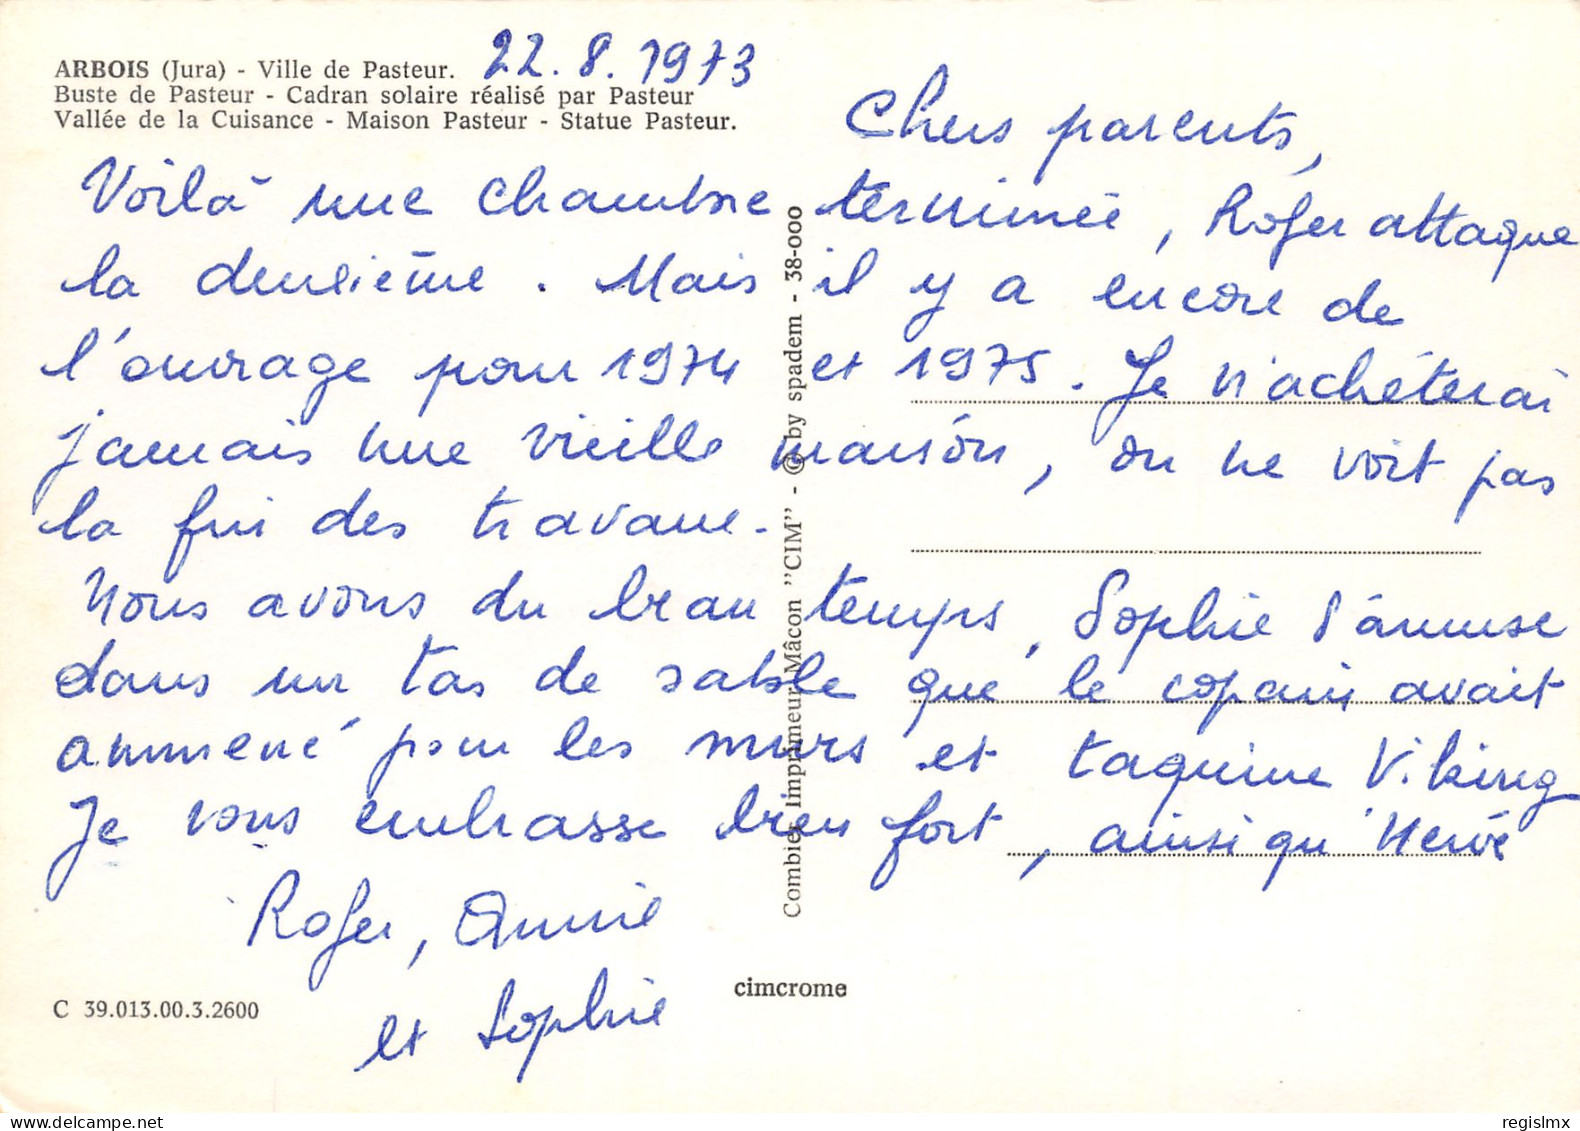 ARBOIS (Jura) - Ville de Pasteur. 22.8.1973
Buste de Pasteur - Cadran solaire réalisé par Pasteur
Vallée de la Cuisance - Maison Pasteur - Statue Pasteur.
Chers parents,
Voilà une chambre terminée, Roger attaque
la deuxième. Mais il y a encore de
l'ouvrage pour 1974 et 1975. Je n'achèterai
jamais une vieille maison, on ne voit pas
la fin des travaux.
Nous avons du beau temps, Sophie s'amuse
dans un tas de sable que le copain avait
ammené pour les murs et taquine Viking
Je vous embrasse bien fort, ainsi qu'Hervé
Roger, Annie
et Sophie
Combier Imprimeur Mâcon "CIM" - © by spadem - 38-000
cimcrome
C 39.013.00.3.2600
regislmx